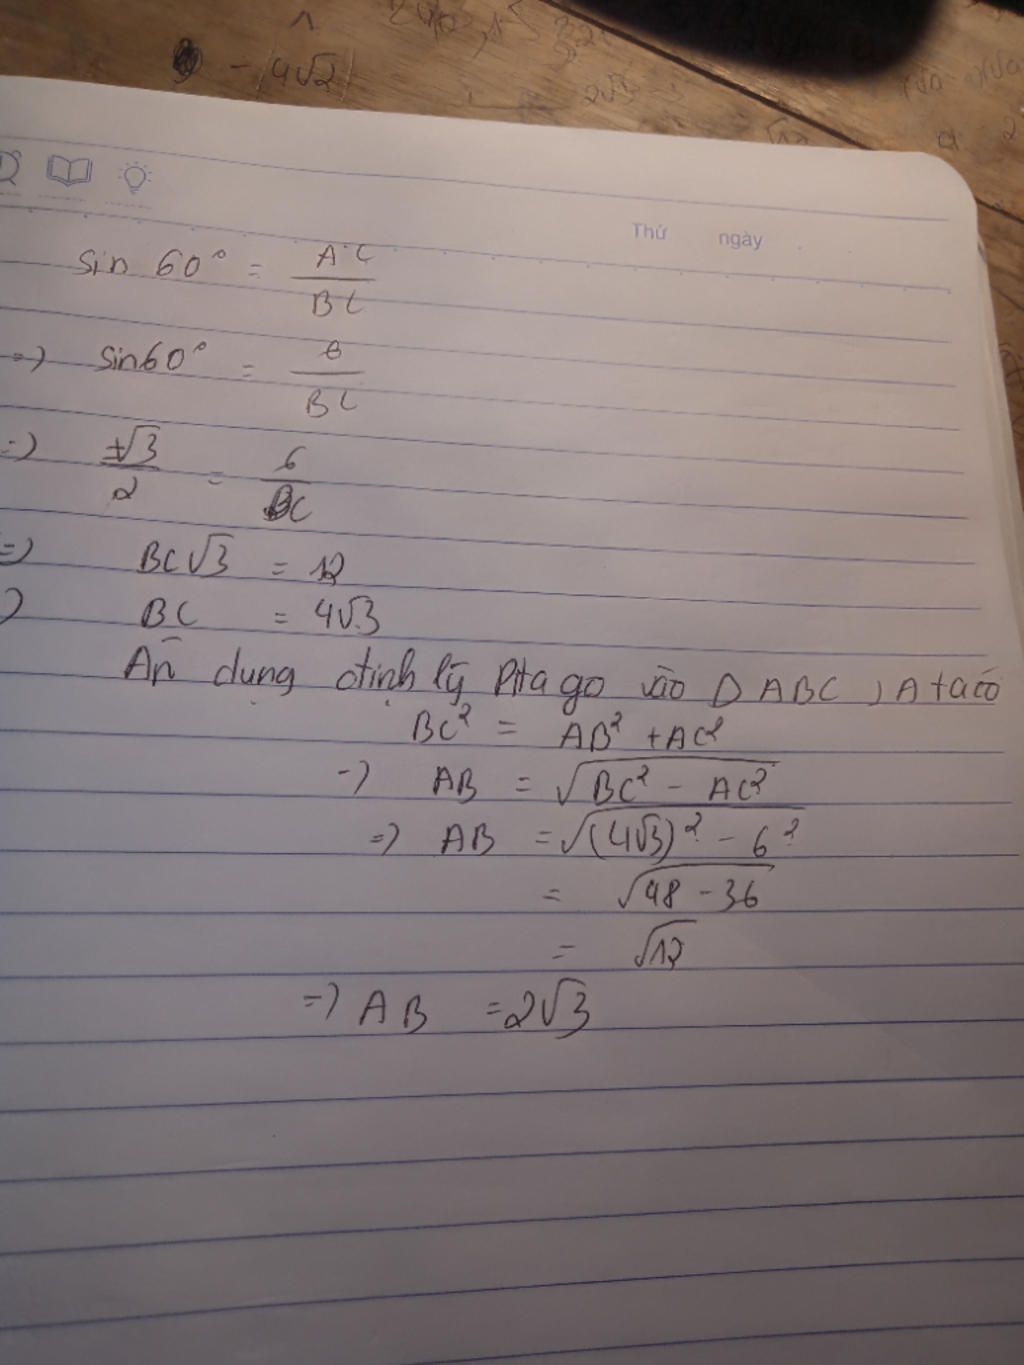 - 4√2
2√3
Thứ ngày
sin 60° = AC / BC
=> sin60° = 6 / BC
=> √3 / 2 = 6 / BC
=> BC√3 = 12
=> BC = 4√3
Áp dụng định lý Pitago vào Δ ABC, A ta có
BC² = AB² + AC²
=> AB = √(BC² - AC²)
=> AB = √((4√3)² - 6²)
= √(48 - 36)
= √12
=> AB = 2√3